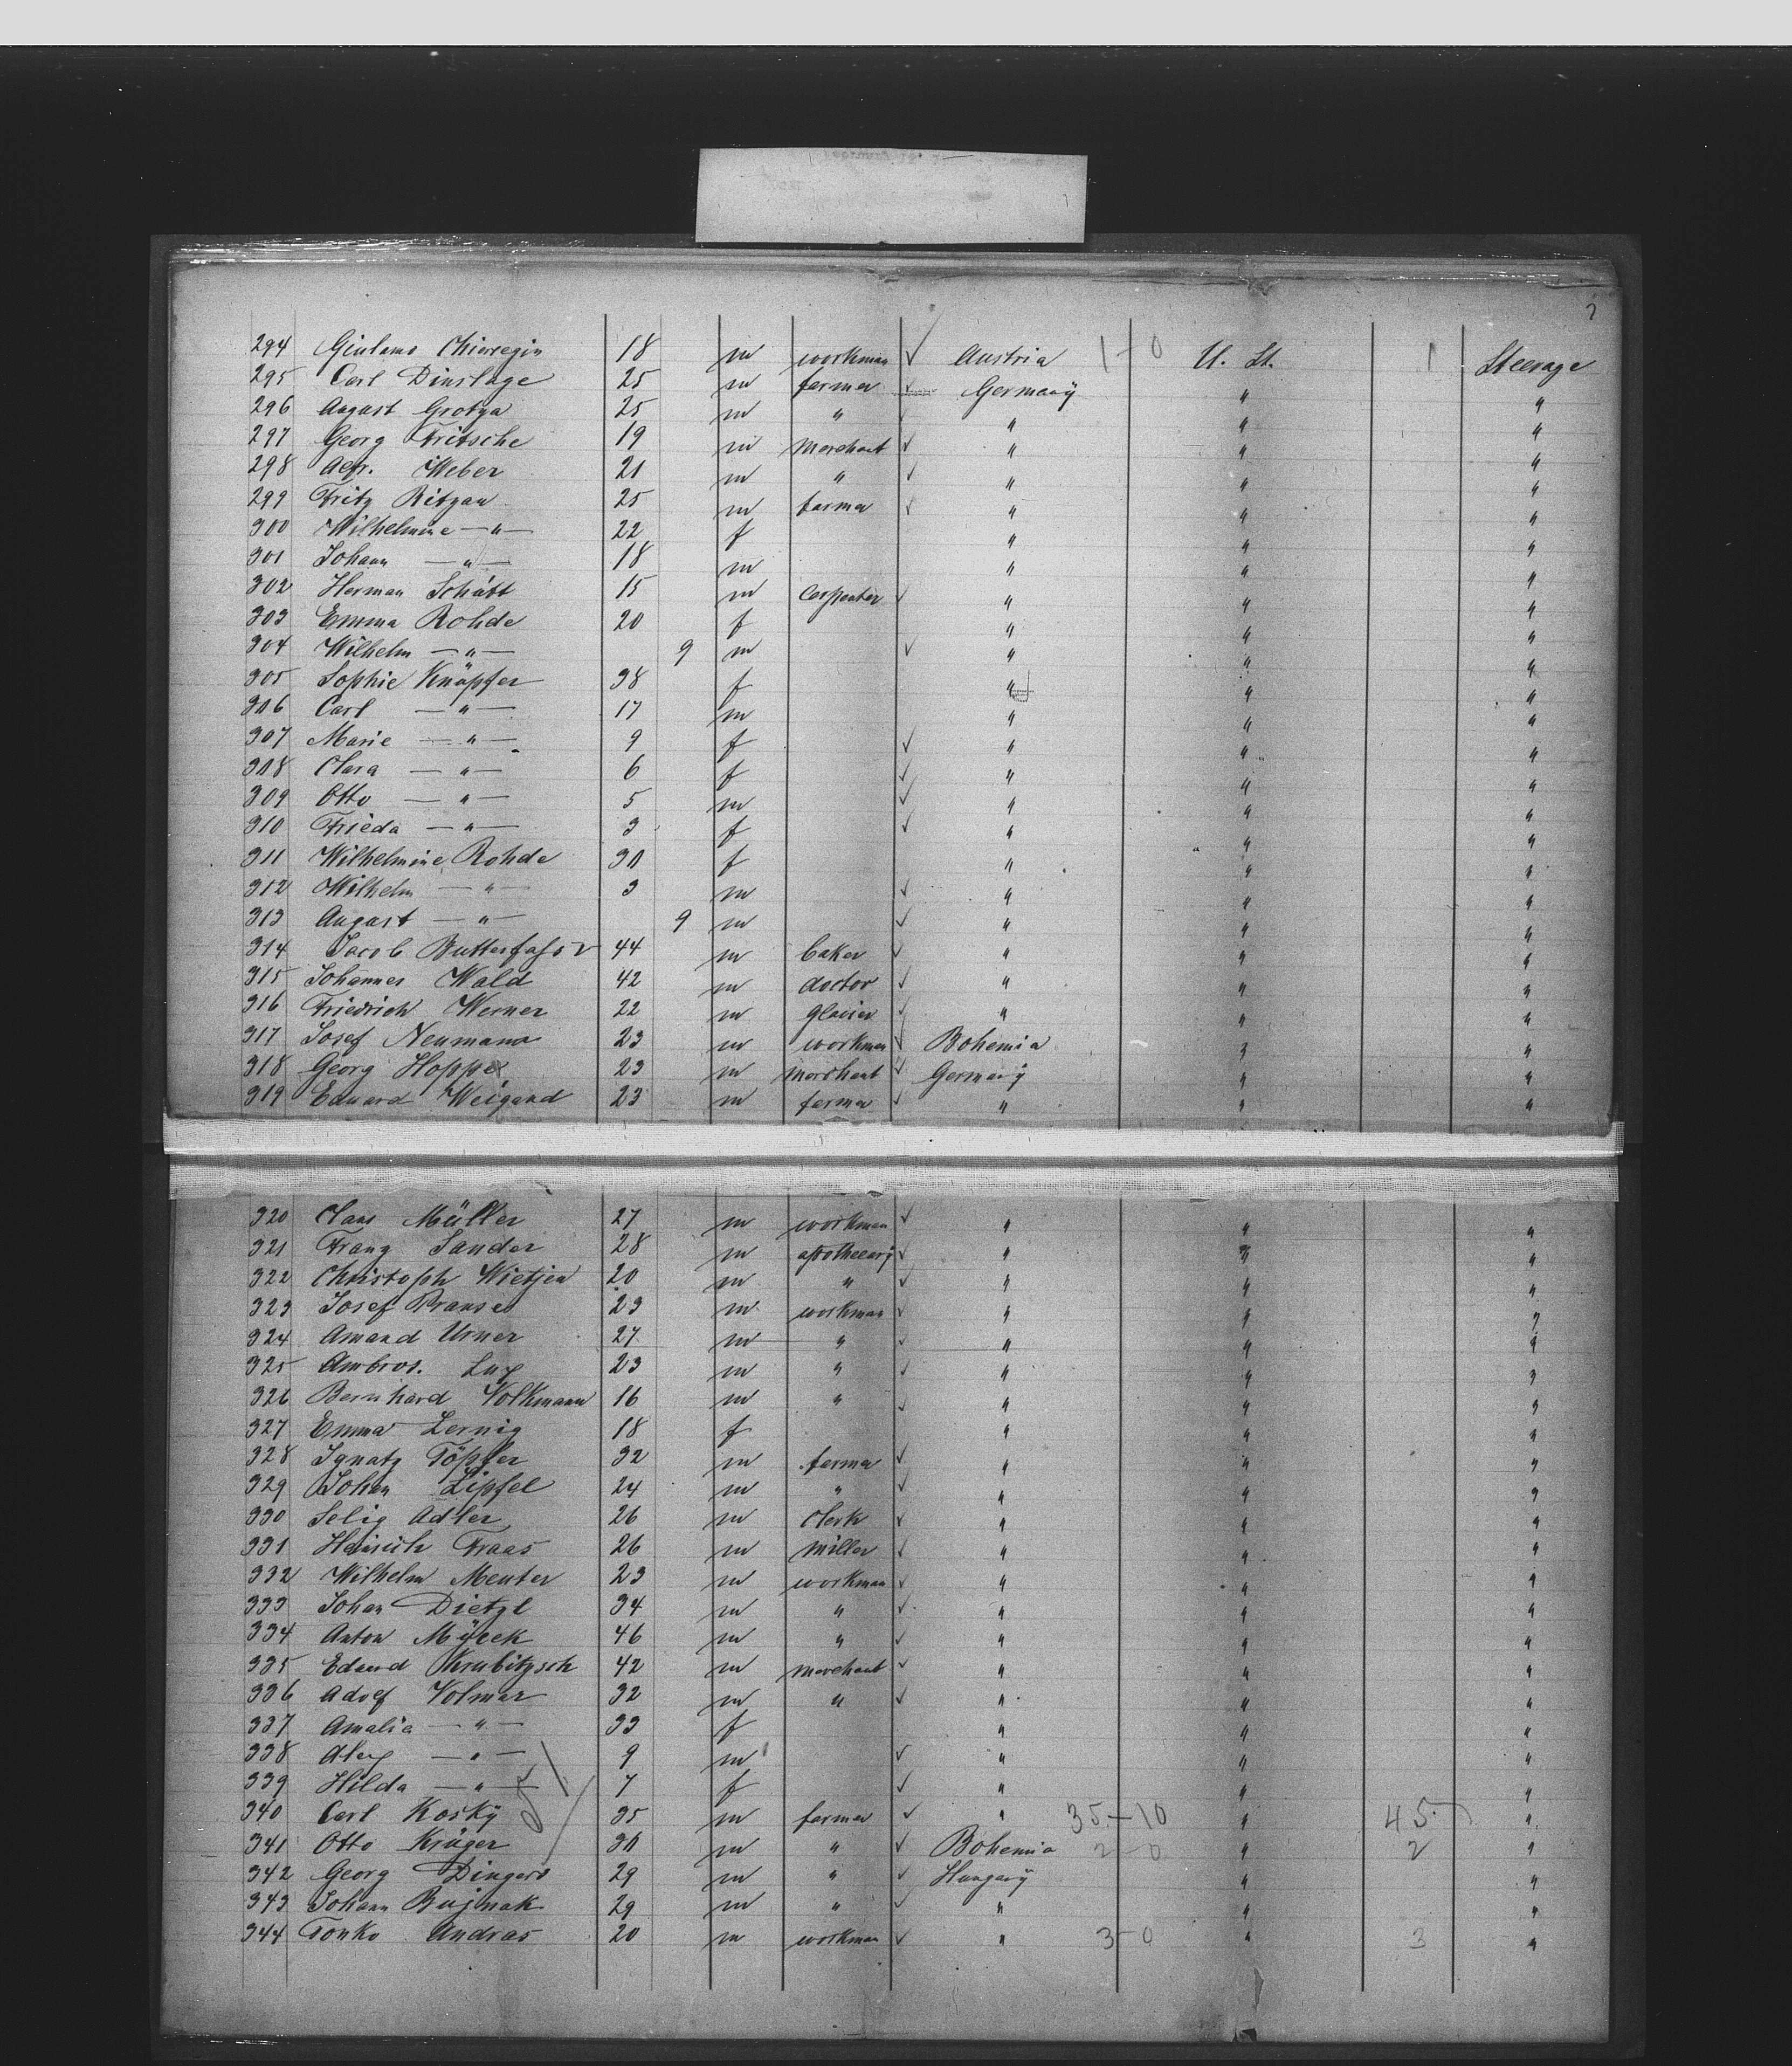 294 Giulamo Chieregin 18 m workman ✓ Austria 1-0 U. St. 1 Steerage
295 Carl Dinslage 25 m farmer ✓ Germany " "
296 August Grotga 25 m " ✓ " " "
297 Georg Fritsche 19 m merchant ✓ " " "
298 Weber 21 m " ✓ " " "
299 Fritz Ritzau 25 m farmer ✓ " " "
300 Wilhelmine —"— 22 f " " "
301 Johann —"— 18 m " " "
302 Herman Schütt 15 m carpenter ✓ " " "
303 Emma Rohde 20 f " " "
304 Wilhelm —"— 9 m ✓ " " "
305 Sophie Knöpfer 38 f " " "
306 Carl —"— 17 m " " "
307 Marie —"— 9 f ✓ " " "
308 Clara —"— 6 f ✓ " " "
309 Otto —"— 5 m ✓ " " "
310 Frieda —"— 3 f ✓ " " "
311 Wilhelmine Rohde 30 f " " "
312 Wilhelm —"— 3 m ✓ " " "
313 August —"— 9 m ✓ " " "
314 Jacob Butterfass 44 m baker ✓ " " "
315 Johannes Wald 42 m doctor ✓ " " "
316 Friedrich Werner 22 m glacier ✓ " " "
317 Josef Neumann 23 m workman ✓ Bohemia " "
318 Georg Hoppe 23 m merchant ✓ Germany " "
319 Eduard Weigand 23 m farmer ✓ " " "
320 Claus Müller 27 m workman ✓ " " "
321 Franz Sander 28 m apothecary ✓ " " "
322 Christoph Wietjen 20 m " ✓ " " "
323 Josef Pranse 23 m workman ✓ " " "
324 Amand Urner 27 m " ✓ " " "
325 Ambros. Lux 23 m " ✓ " " "
326 Bernhard Volkmann 16 m " ✓ " " "
327 Emma Lernig 18 f " " "
328 Ignatz Töpfer 32 m farmer ✓ " " "
329 Johan Zipfel 24 m " ✓ " " "
330 Selig Adler 26 m clerk ✓ " " "
331 Heinrich Fraas 26 m miller ✓ " " "
332 Wilhelm Menter 23 m workman ✓ " " "
333 Johan Dietzl 34 m " ✓ " " "
334 Anton Mÿcek 46 m " ✓ " " "
335 Eduard Krubitzsch 42 m merchant ✓ " " "
336 Adolf Volmar 32 m " ✓ " " "
337 Amalia —"— 33 f " " "
338 Alex —"— 9 m ✓ " " "
339 Hilda —"— 7 f ✓ " " "
340 Carl Koskÿ 35 m farmer ✓ " 35-10 " 45 "
341 Otto Krüger 30 m " ✓ Bohemia 2-0 " 2 "
342 Georg Dingers 29 m " ✓ Hungary " "
343 Johann Bujnak 29 m " ✓ " " "
344 Tonko Andras 20 m workman ✓ " 3-0 " 3 "